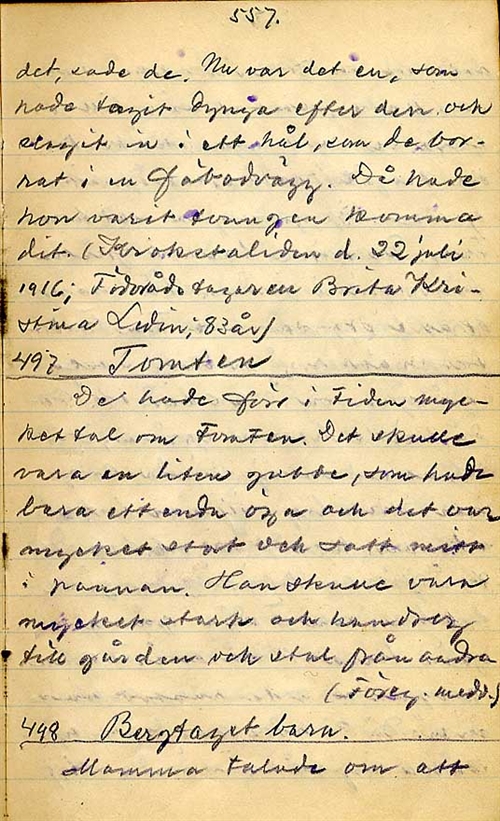 557.
det, sade de. Nu var det en, som
hade tagit dynga efter den och
slagit in i ett hål, som de bor-
rat i en fäbodvägg. Då hade
hon varit tvungen komma
dit. (Krokstaliden d. 22 juli
1916; Födorådstagaren Brita Kri-
stina Lidin, 83 år)
497 Tomten
De hade förr i tiden myc-
ket tal om Tomten. Det skulle
vara en liten gubbe, som hade
bara ett enda öga och det var
mycket stort och satt mitt
i pannan. Han skulle vara
mycket stark och han drog
till gården och stal från andra
(Föreg. medd.)
498 Bergtaget barn.
Mamma talade om att